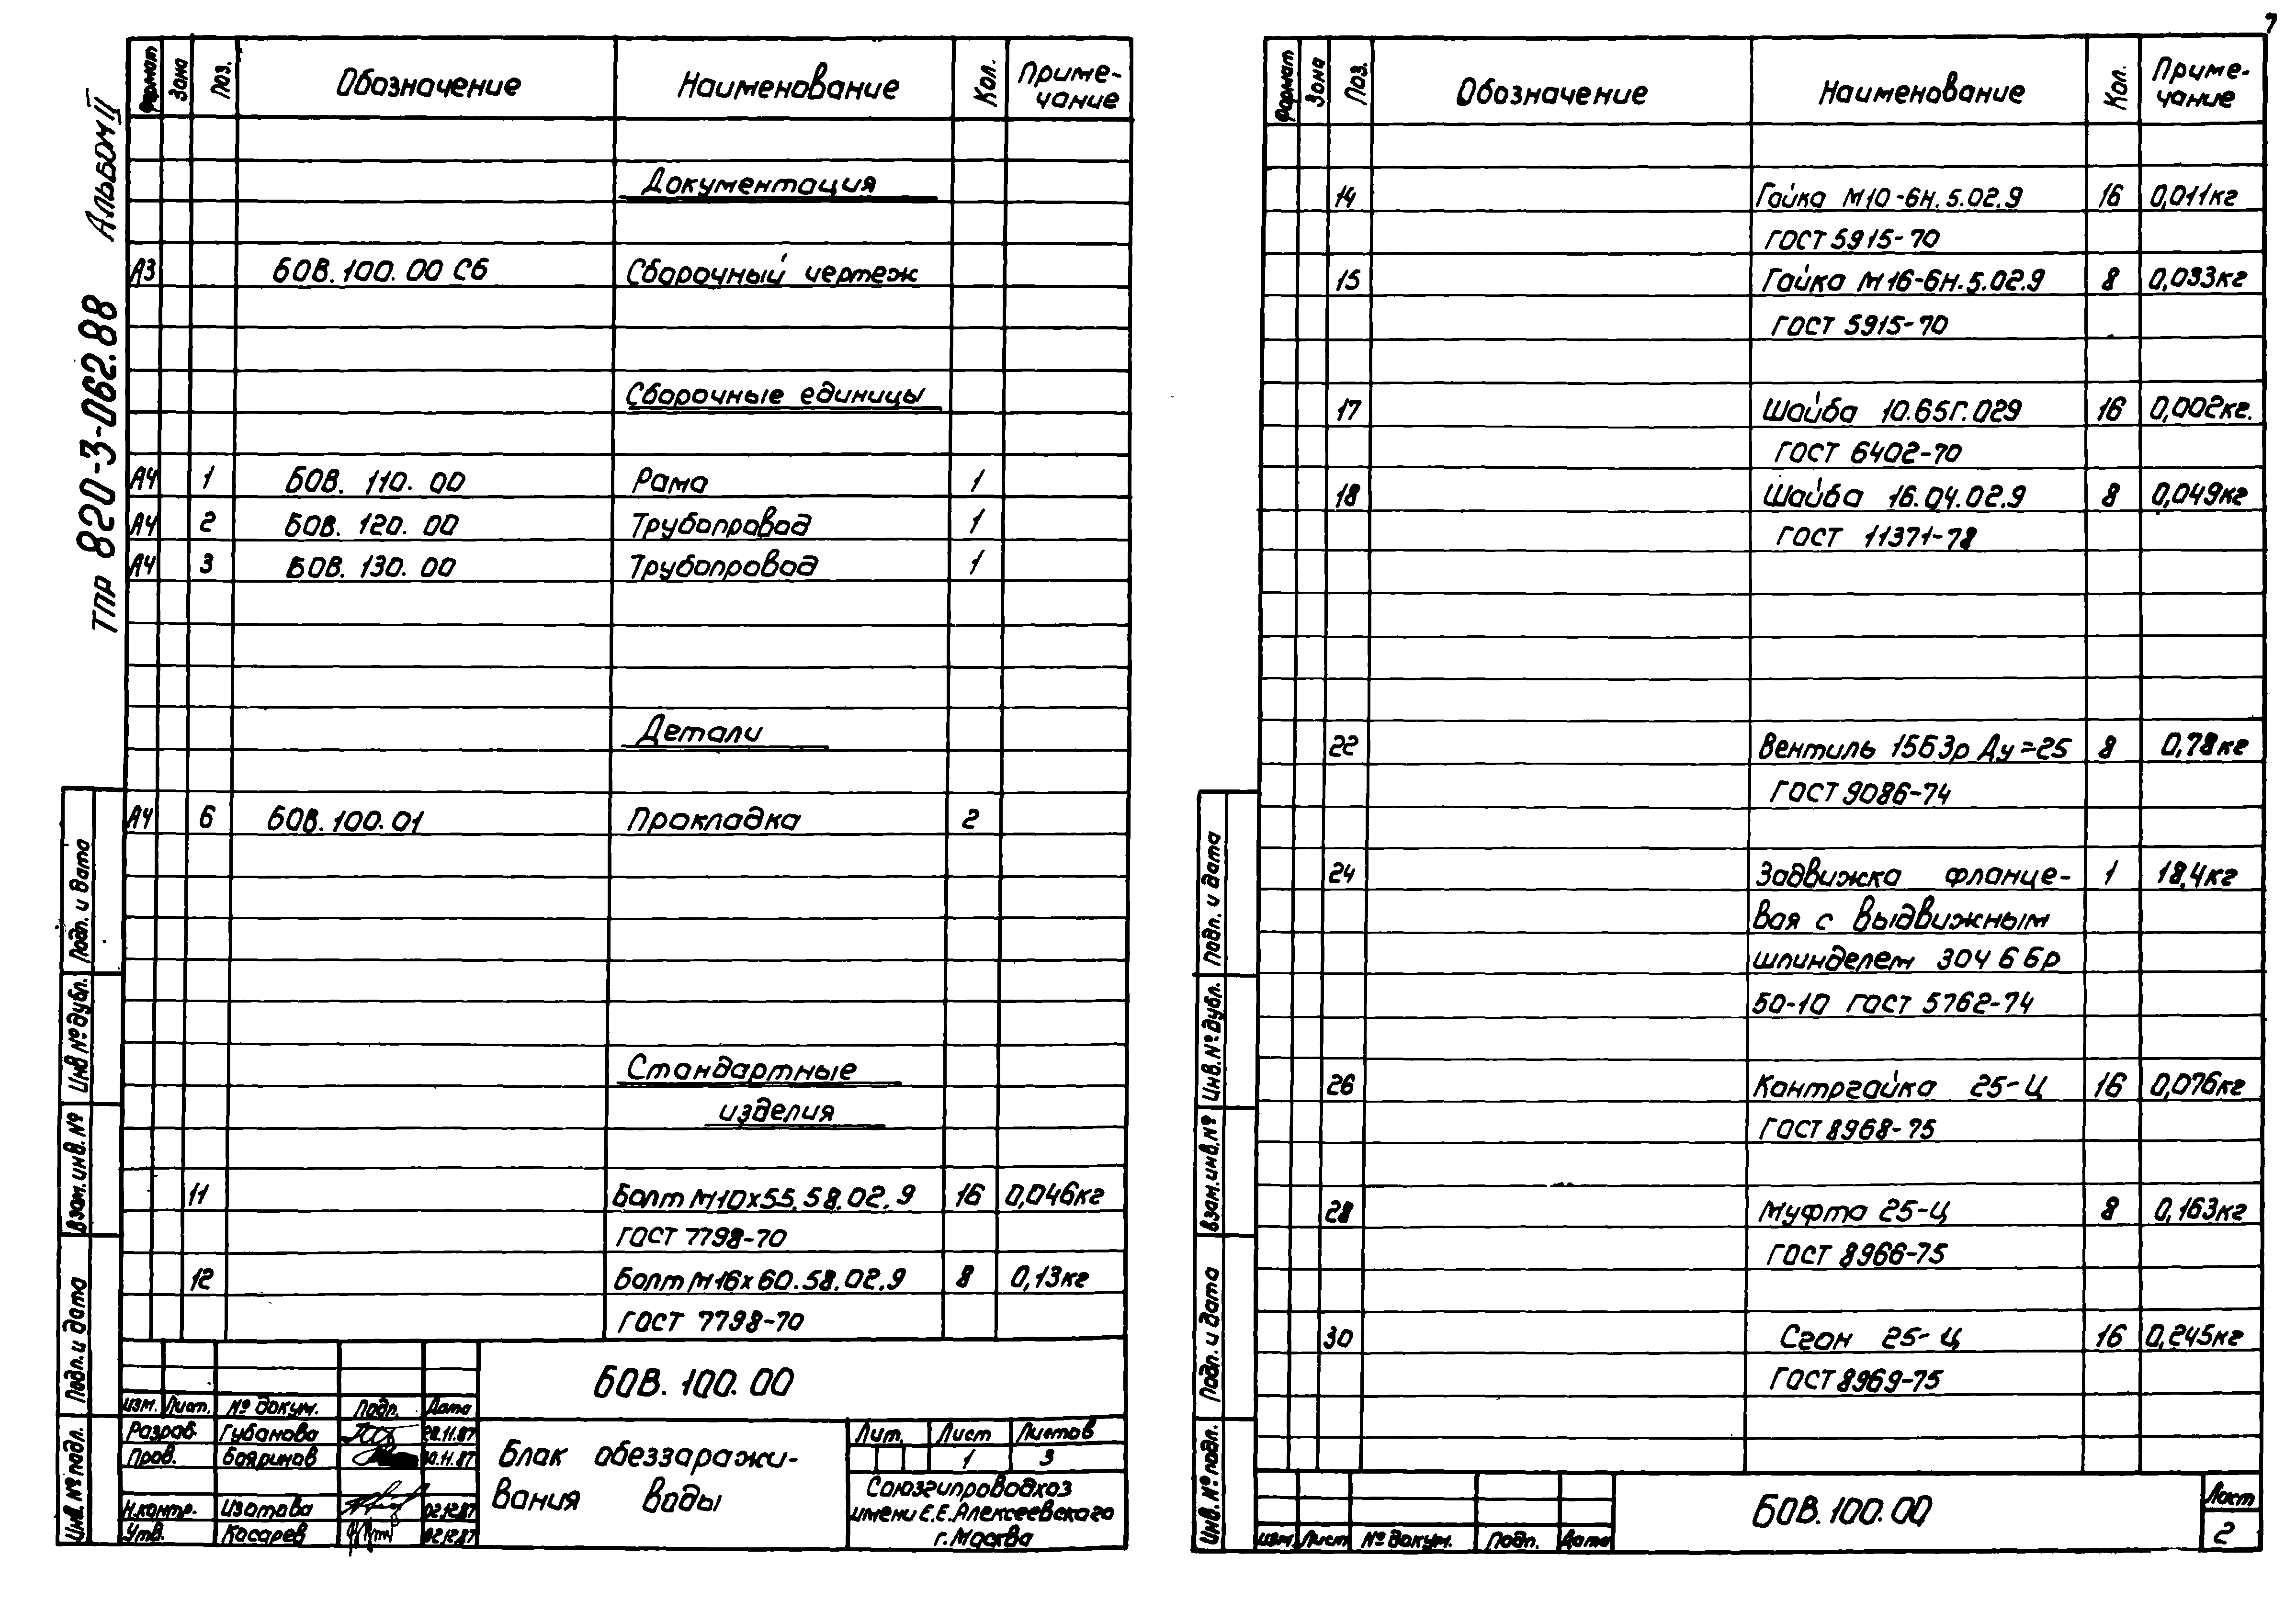 7
Альбом II
ТПР 820-3-062.88
Формат Зона Поз. Обозначение Наименование Кол. Приме-
чание
Документация
А3 БОВ.100.00 СБ Сборочный чертеж
Сборочные единицы
А4 1 БОВ. 110. 00 Рама 1
А4 2 БОВ. 120. 00 Трубопровод 1
А4 3 БОВ. 130. 00 Трубопровод 1
Детали
А4 6 БОВ.100.01 Прокладка 2
Стандартные
изделия
11 Болт М10х55.58.02.9 16 0,046кг
ГОСТ 7798-70
12 Болт М16х60.58.02.9 8 0,13кг
ГОСТ 7798-70
Подп. и дата
Инв № дубл.
Взам. инв. №
Подп. и дата
Инв. № подл.
БОВ. 100. 00
Изм. Лист. № докум. Подп. Дата
Разраб. Губанова 20.11.87
Пров. Бояринов 30.11.87
Н.контр. Изотова 02.12.87
Утв. Косарев 02.12.87
Блок обеззаражи-
вания воды
Лит. Лист Листов
1 3
Союзгипроводхоз
имени Е.Е.Алексеевского
г. Москва
Формат Зона Поз. Обозначение Наименование Кол. Приме-
чание
14 Гайка М10-6Н.5.02.9 16 0,011кг
ГОСТ 5915-70
15 Гайка М16-6Н.5.02.9 8 0,033кг
ГОСТ 5915-70
17 Шайба 10.65Г.029 16 0,002кг.
ГОСТ 6402-70
18 Шайба 16.04.02.9 8 0,049кг
ГОСТ 11371-78
22 Вентиль 15Б3р Ду=25 8 0,78кг
ГОСТ 9086-74
24 Задвижка фланце- 1 18,4кг
вая с выдвижным
шпинделем 30Ч6бр
50-10 ГОСТ 5762-74
26 Контргайка 25-Ц 16 0,076кг
ГОСТ 8968-75
28 Муфта 25-Ц 8 0,163кг
ГОСТ 8966-75
30 Сгон 25-Ц 16 0,245кг
ГОСТ 8969-75
Подп. и дата
Инв. № дубл.
Взам. инв. №
Подп. и дата
Инв. № подл.
Изм. Лист № докум. Подп. Дата
БОВ.100.00
Лист
2